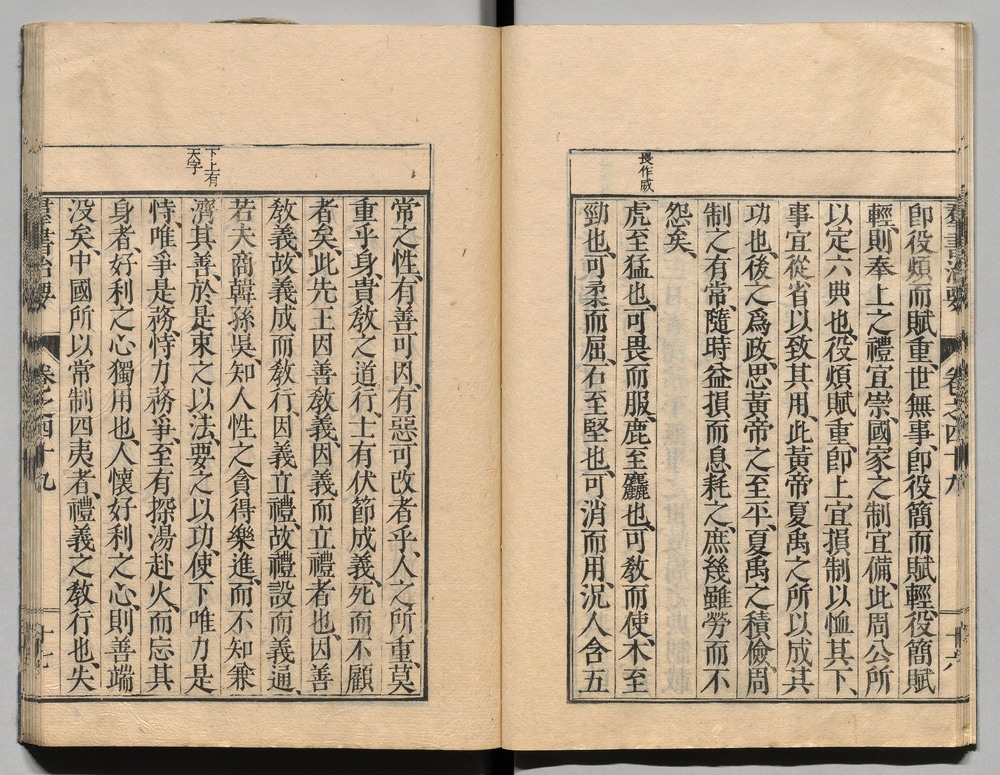 群書治要 卷之四十九 十六
即役煩而賦重、世無事、即役簡而賦輕、役簡賦
輕、則奉上之禮宜崇、國家之制宜備、此周公所
以定六典也、役煩賦重、即上宜損制以恤其下、
事宜從省以致其用、此黃帝夏禹之所以成其
功也、後之爲政、思黃帝之至平、夏禹之積儉、周
制之有常、隨時益損而息耗之、庶幾雖勞而不
怨矣、
畏作威
虎至猛也、可畏而服、鹿至麤也、可敎而使、木至
勁也、可柔而屈、石至堅也、可消而用、況人含五
常之性、有善可因、有惡可改者乎、人之所重、莫
重乎身、貴敎之道行、士有伏節成義、死而不顧
者矣、此先王因善敎義、因義而立禮者也、因善
敎義、故義成而敎行、因義立禮、故禮設而義通、
若夫商韓孫吳、知人性之貪得樂進、而不知兼
下上有
天字
濟其善、於是束之以法、要之以功、使下唯力是
恃、唯爭是務、恃力務爭、至有探湯赴火、而忘其
身者、好利之心獨用也、人懷好利之心、則善端
沒矣、中國所以常制四夷者、禮義之敎行也、失
群書治要 卷之四十九 十七